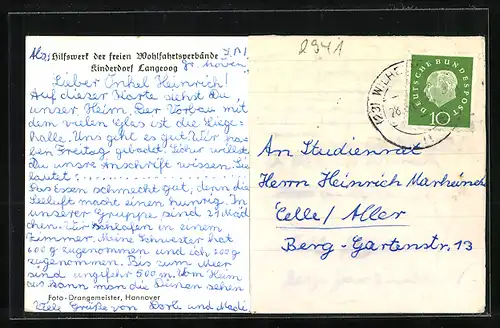 Hilfswerk der freien Wohlfahrtsverbände
Kinderdorf Langeoog
Lieber Onkel Heinrich!
Auf dieser Karte siehst Du
unser Heim. Der Vorbau mit
dem vielen Glas ist die Liege-
halle. Uns geht es gut. Wir ha-
ben Freitag gebadet. Sicher willst
Du unsre Anschrift wissen. Sie
lautet:
Das Essen schmeckt gut, denn die
Seeluft macht einen hungrig. In
unserer Gruppe sind 21 Mäd
chen. Wir schlafen in einem
Zimmer. Meine Schwester hat
600 g zugenommen und ich 200 g
zugenommen. Bis zum Meer
sind ungefähr 500 m. Vom Heim
aus kann man die Dünen sehen
Viele Grüße von und
Foto-Drangemeister, Hannover
2941
DEUTSCHE BUNDESPOST
10
(23)
An Studienrat
Herrn Heinrich
Celle / Aller
Berg-Gartenstr. 13